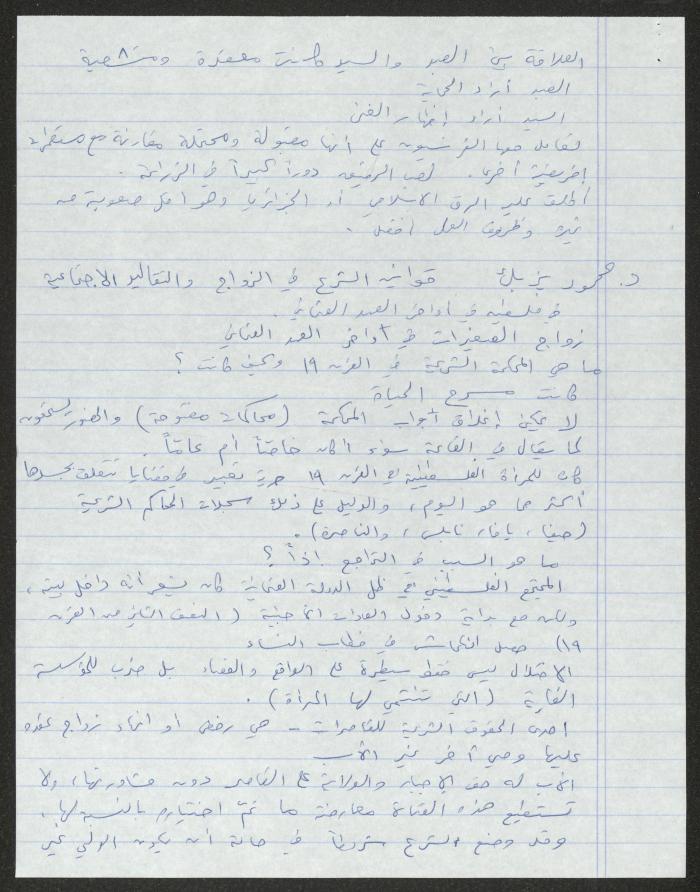 العلاقة بين العبد والسيد كانت معقدة ومتشعبة
العبد أراد الحماية
السيد أراد إظهار الغنى
تعامل معها الفرنسيون على أنها مقبولة ومحتملة مقارنة مع مستعمرات
إفريقية أخرى. لعب الرقيق دوراً كبيراً في الزراعة.
أطلق عليه الرق الإسلامي أو الجزائري وهو أقل صعوبة من
غيره وظروف العمل أفضل.
د. محمود يزبك قوانين الشرع في الزواج والتقاليد الاجتماعية
في فلسطين في أواخر العهد العثماني.
زواج الصغيرات في أواخر العهد العثماني
ما هي المحكمة الشرعية في القرن ١٩ وكيف كانت؟
كانت مسرح الحياة
لا يمكن إغلاق أبواب المحكمة (محاكمات مفتوحة) والحضور يستمعون
لما يقال في القاعة سواء أكان خاصاً أم عاماً.
كان للمرأة الفلسطينية في القرن ١٩ حرية تعبير في قضايا تتعلق بجسدها
أكثر مما هو اليوم، والدليل على ذلك سجلات المحاكم الشرعية
(حيفا، يافا، نابلس، والناصرة).
ما هو السبب في التراجع إذاً؟
المجتمع الفلسطيني في ظل الدولة العثمانية كان يشعر أنه داخل بيته،
ولكن مع بداية دخول العادات الأجنبية (النصف الثاني من القرن
١٩) حصل انكماش في خطاب النساء
الاحتلال ليس فقط سيطرة على الواقع والفضاء بل ضرب للمؤسسة
القارية (التي تنتمي لها المرأة).
إحدى الحقوق الشرعية للقاصرات - هي رفض أو إنهاء زواج عقده
عليها وصي آخر غير الأب
الأب له حق الإجبار والولاية على القاصر دون مشاورتها، ولا
تستطيع هذه الفتاة معارضة ما تمّ اختياره بالنسبة لها.
وقد وضع الشرع شروطاً في حالة أن يكون الولي غير